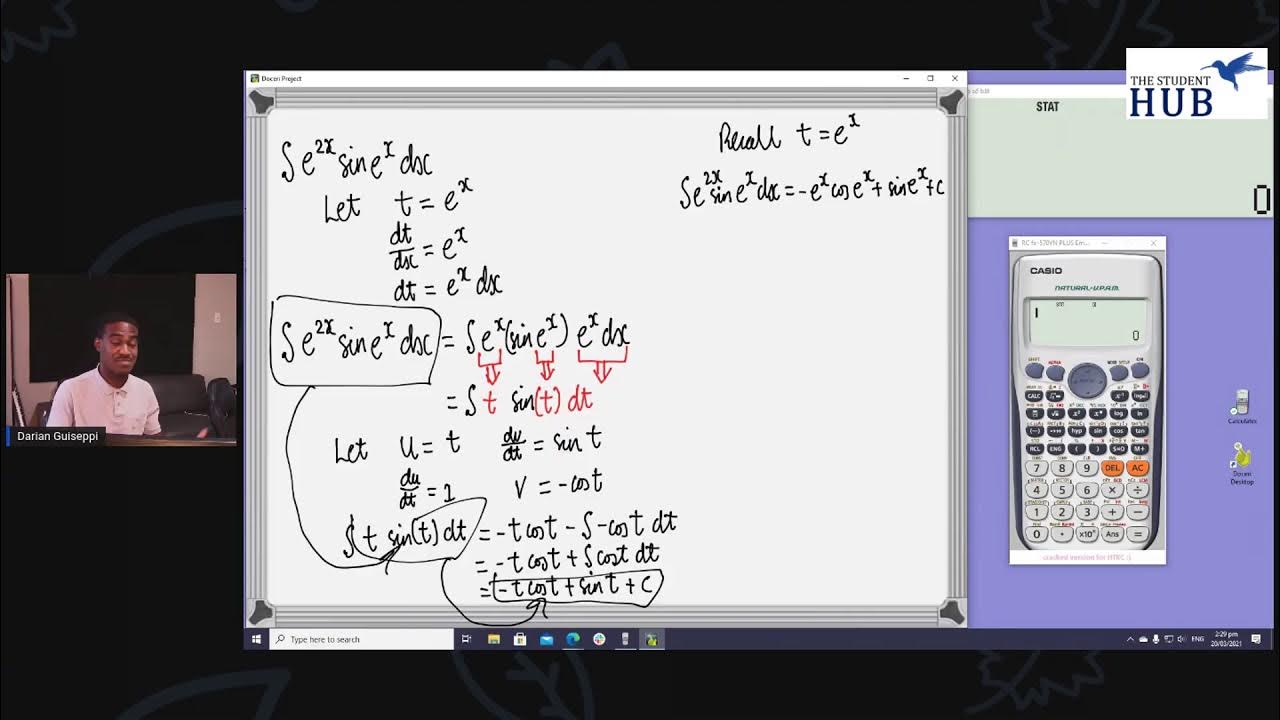 Docen Project
THE STUDENT
HUB
STAT
0
∫e^{2x} sin e^x dx
Let t = e^x
dt/dx = e^x
dt = e^x dx
∫e^{2x} sin e^x dx = ∫e^x (sin e^x) e^x dx
= ∫ t sin(t) dt
Let u = t dv/dt = sin t
du/dt = 1 v = -cos t
∫ t sin(t) dt = -t cos t - ∫ -cos t dt
= -t cos t + ∫ cos t dt
= -t cos t + sin t + c
Recall t = e^x
∫e^{2x} sin e^x dx = -e^x cos e^x + sin e^x + c
Darian Guiseppi
RC fx-570VN PLUS Em...
CASIO
NATURAL-V.P.A.M.
0
CALC
log
ln
hyp sin cos tan
RCL ENG ( ) S⇔D M+
7 8 9 DEL AC
4 5 6 × ÷
1 2 3 + −
0 . ×10ˣ Ans =
cracked version for HTKC :)
Calculates
Docen
Desktop
Type here to search
ENG
2:29 pm
20/03/2021